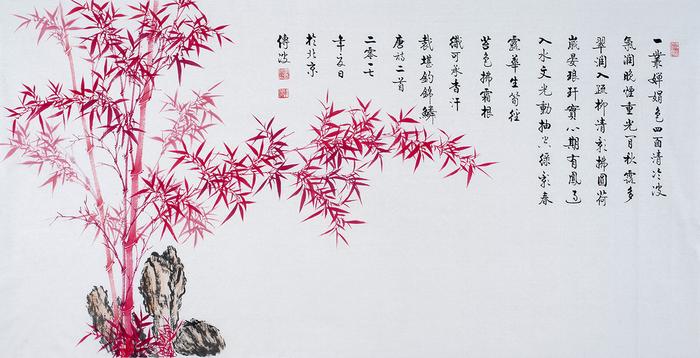 一叢嬋娟色四面清冷波
氣潤晚煙重光閒秋露多
翠潤入疏柳清影拂圓荷
歲晏琅玕實心期有鳳過
入水文光動抽空綠影春
露華生筍徑
苔色拂霜根
織可承香汗
裁堪釣錦鱗
唐詩二首
二零一七
年元日
於北京
傳波